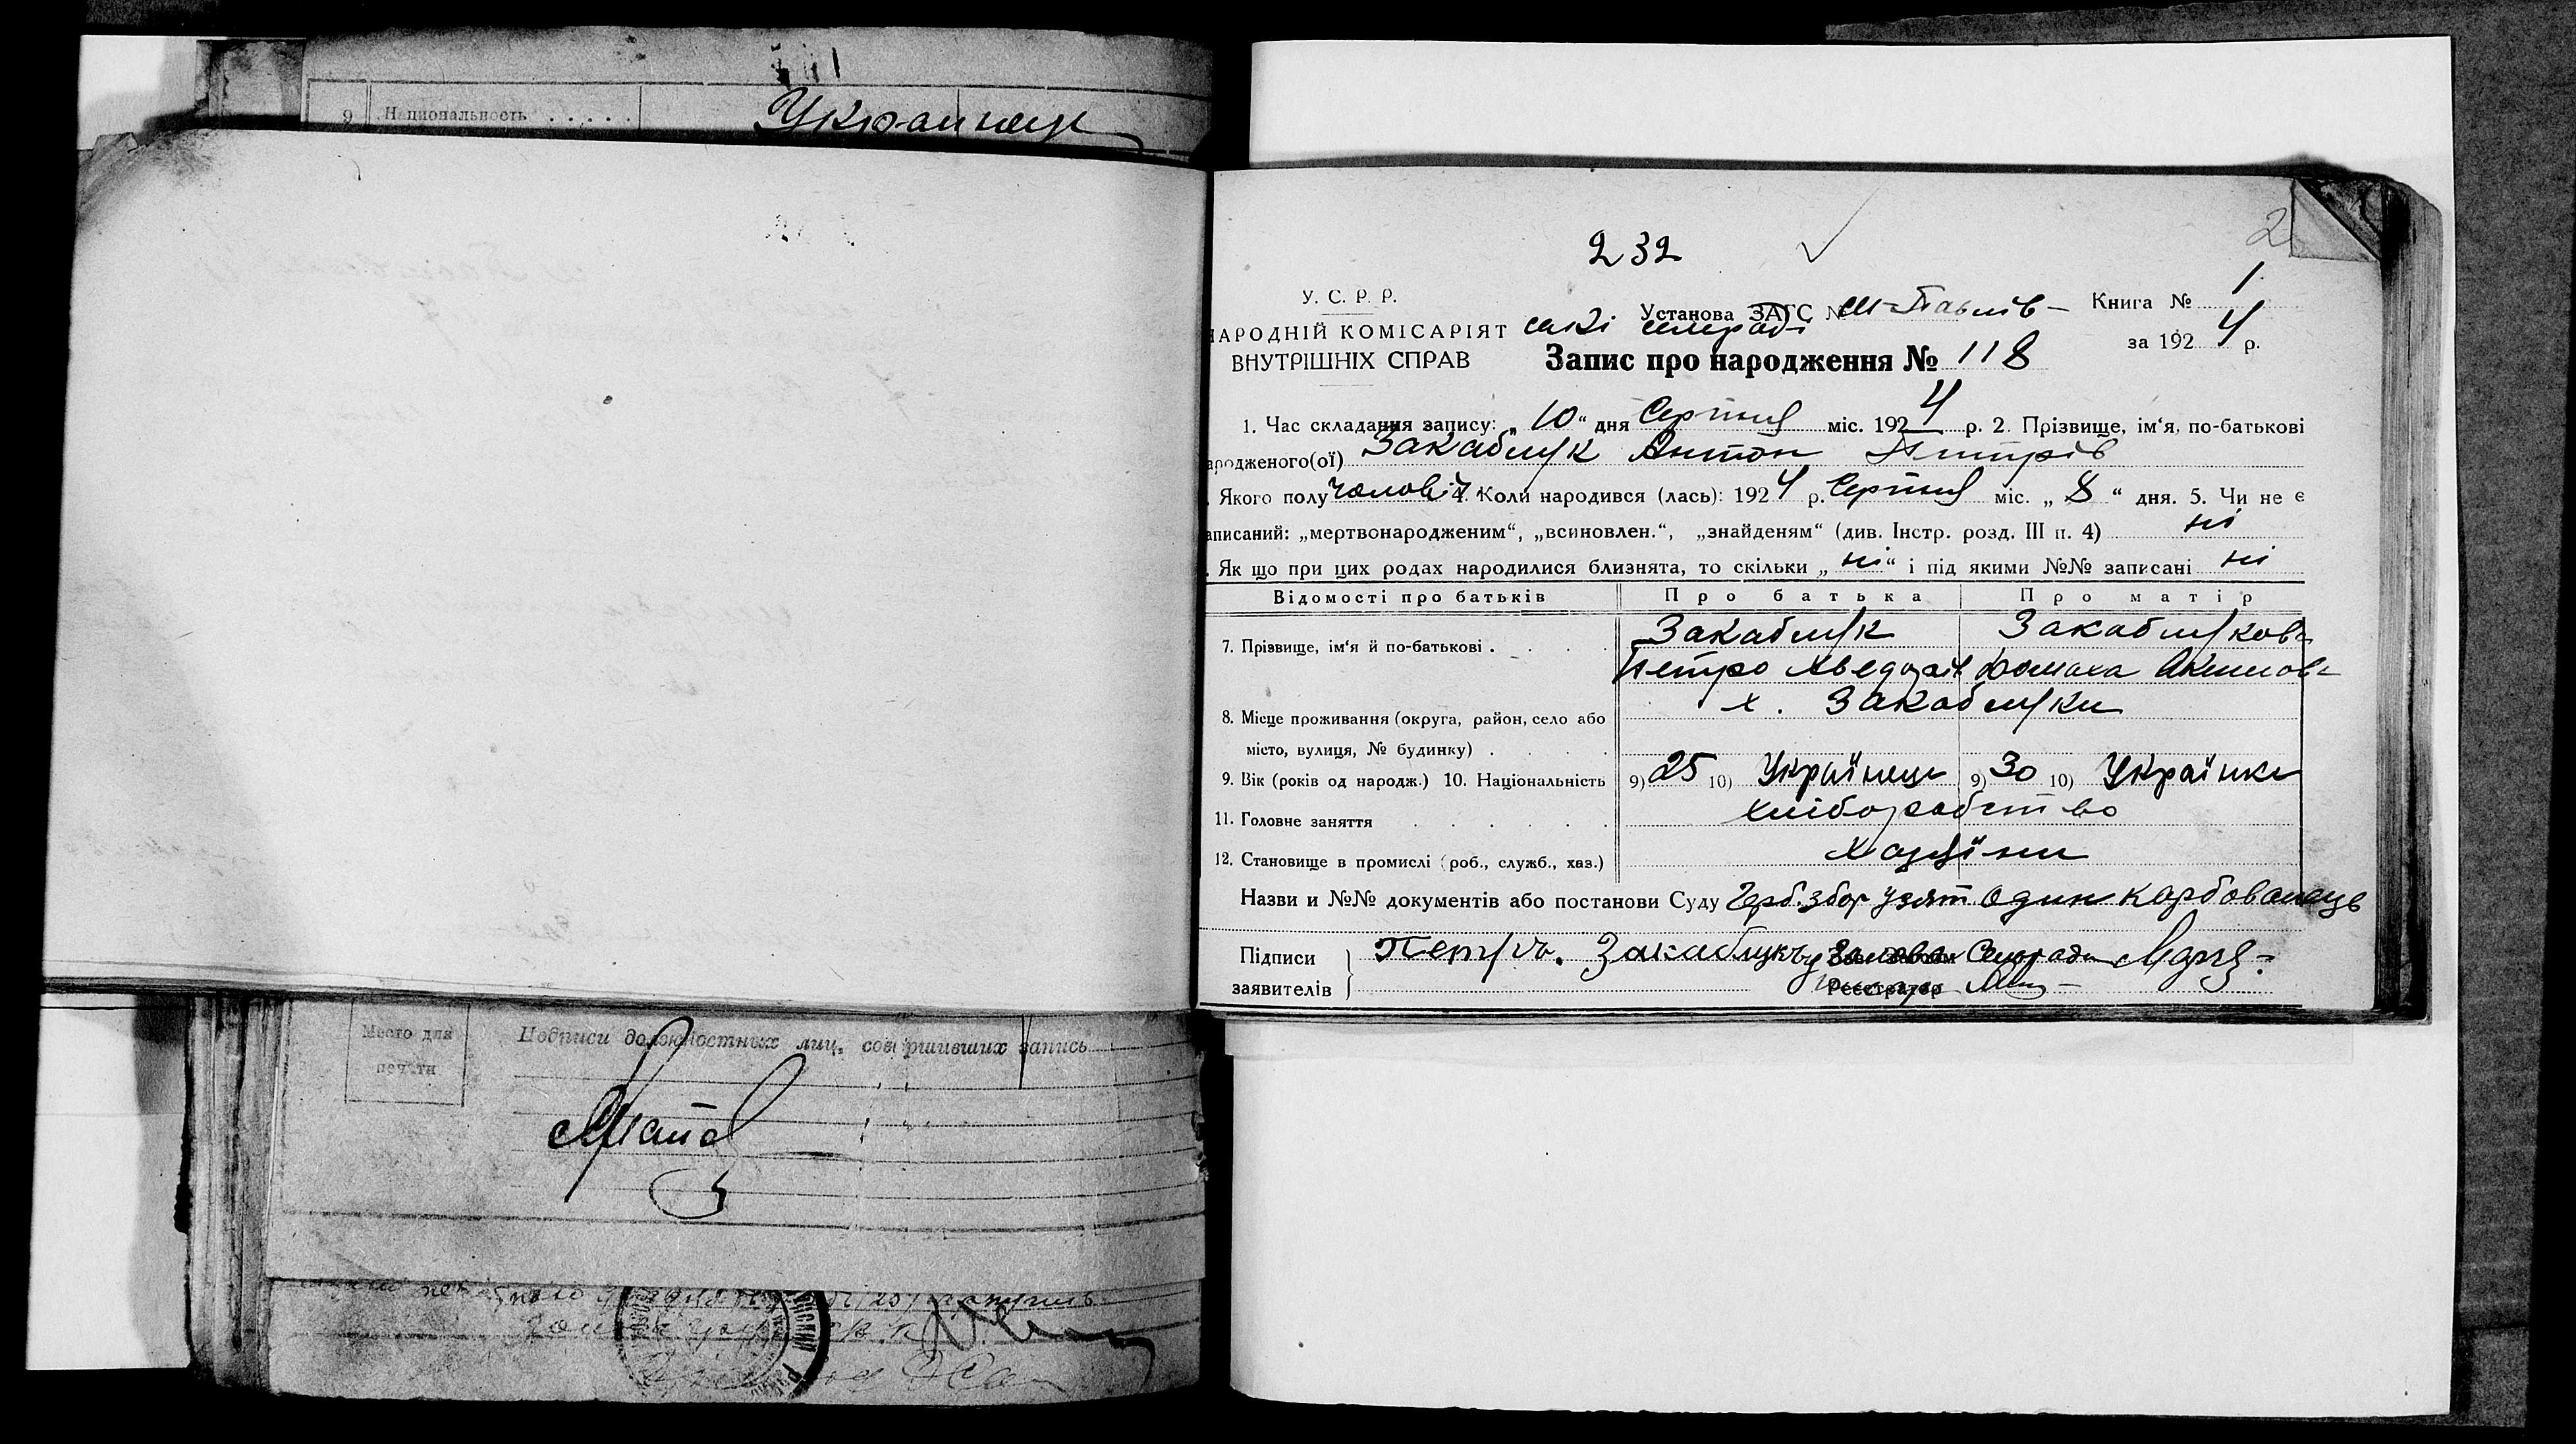 9 Национальность . . . . .
Украинец
232
2
У. С. Р. Р.
НАРОДНІЙ КОМІСАРІЯТ
ВНУТРІШНІХ СПРАВ
Установа ЗАГС №
Книга № 1
за 1924 р.
Запис про народження № 118
1. Час складання запису: „10“ дня Серпня міс. 1924 р. 2. Прізвище, ім‘я, по-батькові
ародженого(ої) Закаблук Антон Петрів
. Якого полу чоловіч. 4. Коли народився (лась): 1924 р. Серпня міс. „8“ дня. 5. Чи не є
аписаний: „мертвонародженим“, „всиновлен.“, „знайденям“ (див. Інстр. розд. III п. 4) ні
. Як що при цих родах народилися близнята, то скільки „ні“ і під якими №№ записані ні
Відомості про батьків Про батька Про матір
7. Прізвище, ім‘я й по-батькові . . . . Закаблук Закаблукова
Петро Хведорів Домаха Акимова
8. Місце проживання (округа, район, село або х. Закаблуки
місто, вулиця, № будинку) . . . .
9. Вік (років од народж.) 10. Національність 9) 25 10) Українець 9) 30 10) Українка
11. Головне заняття . . . . . . хліборобство
12. Становище в промислі (роб., служб., хаз.) Хазяїни
Назви и №№ документів або постанови Суду Герб. збор узят один карбованець
Підписи заявителів Петръ. Закаблукъ Голова Сельради
Реєстратор
Место для печати
Подписи должностных лиц, совершивших запись